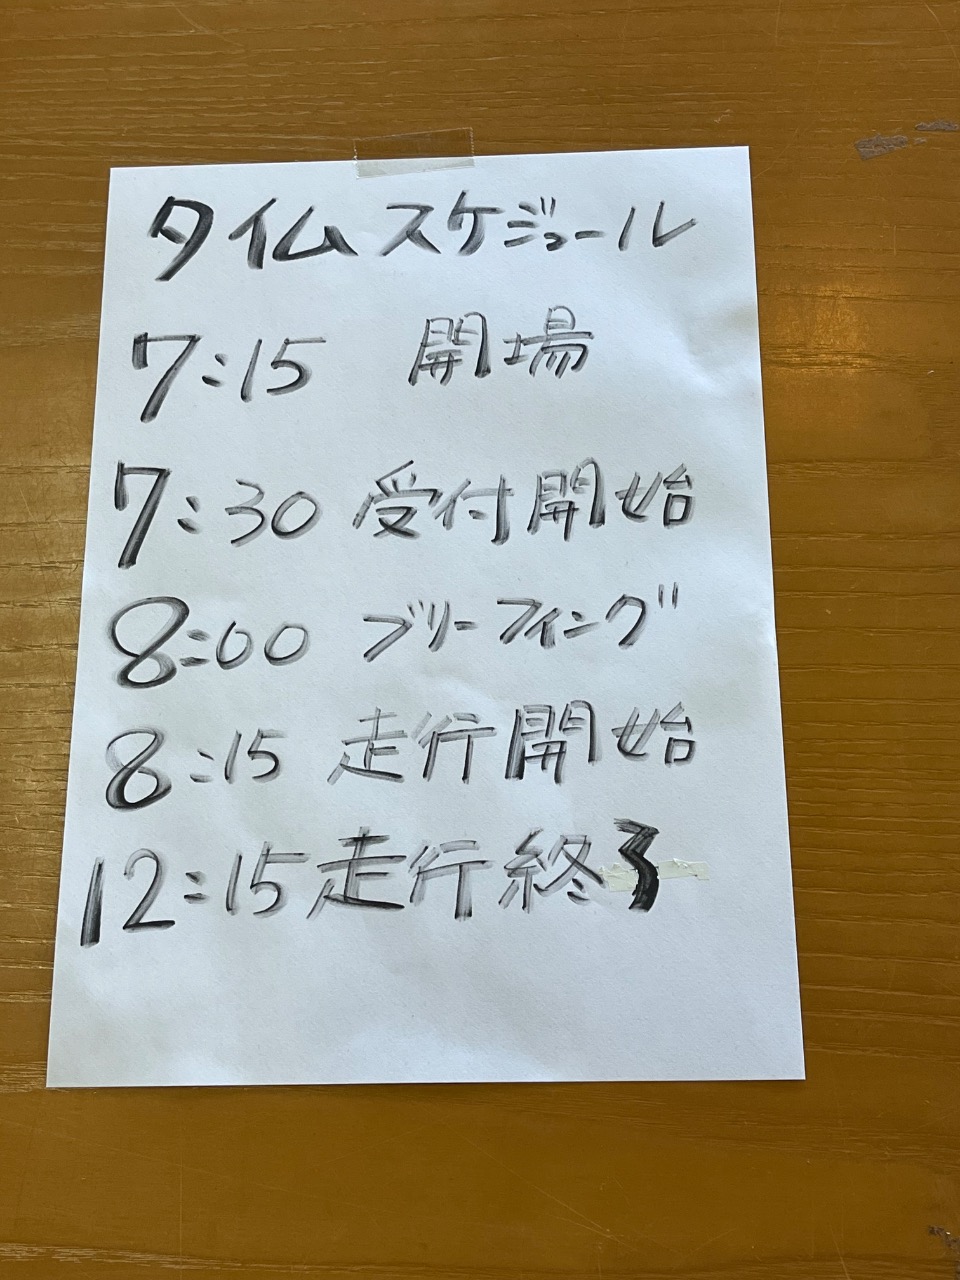 タイムスケジュール
7:15 開場
7:30 受付開始
8:00 ブリーフィング
8:15 走行開始
12:15 走行終了